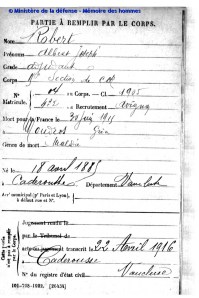 © Ministère de la défense - Mémoire des hommes
PARTIE À REMPLIR PAR LE CORPS.
Nom Robert
Prénoms Albert Joseph
Grade
Corps Section de
N° au Corps. — Cl. 1905
Matricule. 472 au Recrutement Avignon
Mort pour la France le 30 juin 1915
à
Genre de mort Maladie
Né le 18 avril 1885
à Caderousse Département Vaucluse
Arrt municipal (p' Paris et Lyon),
à défaut rue et N°.
Jugement rendu le
par le Tribunal de
acte ou jugement transcrit le 22 Avril 1916
à Caderousse
Vaucluse
N° du registre d'état civil